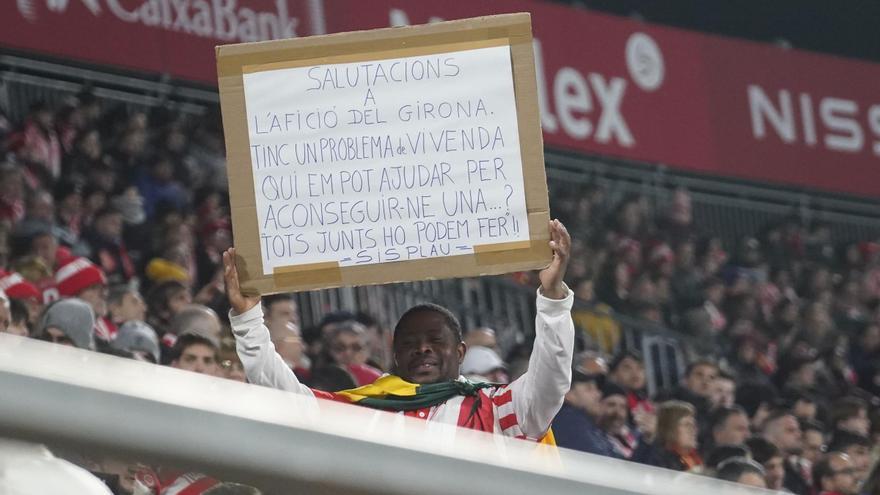 CaixaBank
SALUTACIONS
A
L'AFICIÓ DEL GIRONA.
TINC UN PROBLEMA de VIVENDA
QUI EM POT AJUDAR PER
ACONSEGUIR-NE UNA...?
TOTS JUNTS HO PODEM FER!!
-SIS PLAU-